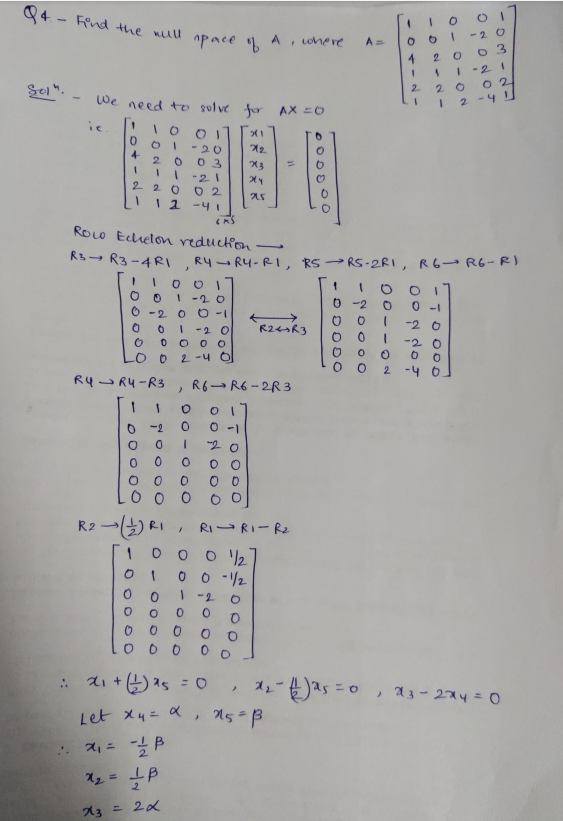 Q4. - Find the null space of A, where A = [1 1 0 0 1
0 0 1 -2 0
4 2 0 0 3
1 1 1 -2 1
2 2 0 0 2
1 1 2 -4 1]
Solⁿ. - We need to solve for AX = 0
i.e. [1 1 0 0 1
0 0 1 -2 0
4 2 0 0 3
1 1 1 -2 1
2 2 0 0 2
1 1 2 -4 1] [x1
x2
x3
x4
x5] = [0
0
0
0
0
0]
6×5
Row Echelon reduction →
R3 → R3-4R1, R4 → R4-R1, R5 → R5-2R1, R6 → R6-R1
[1 1 0 0 1
0 0 1 -2 0
0 -2 0 0 -1
0 0 1 -2 0
0 0 0 0 0
0 0 2 -4 0]
R2↔R3
[1 1 0 0 1
0 -2 0 0 -1
0 0 1 -2 0
0 0 1 -2 0
0 0 0 0 0
0 0 2 -4 0]
R4 → R4-R3, R6 → R6-2R3
[1 1 0 0 1
0 -2 0 0 -1
0 0 1 -2 0
0 0 0 0 0
0 0 0 0 0
0 0 0 0 0]
R2 → (1/2) R1, R1 → R1-R2
[1 0 0 0 1/2
0 1 0 0 -1/2
0 0 1 -2 0
0 0 0 0 0
0 0 0 0 0
0 0 0 0 0]
∴ x1 + (1/2) x5 = 0, x2 - (1/2) x5 = 0, x3 - 2x4 = 0
Let x4 = α, x5 = β
∴ x1 = -1/2 β
x2 = 1/2 β
x3 = 2α